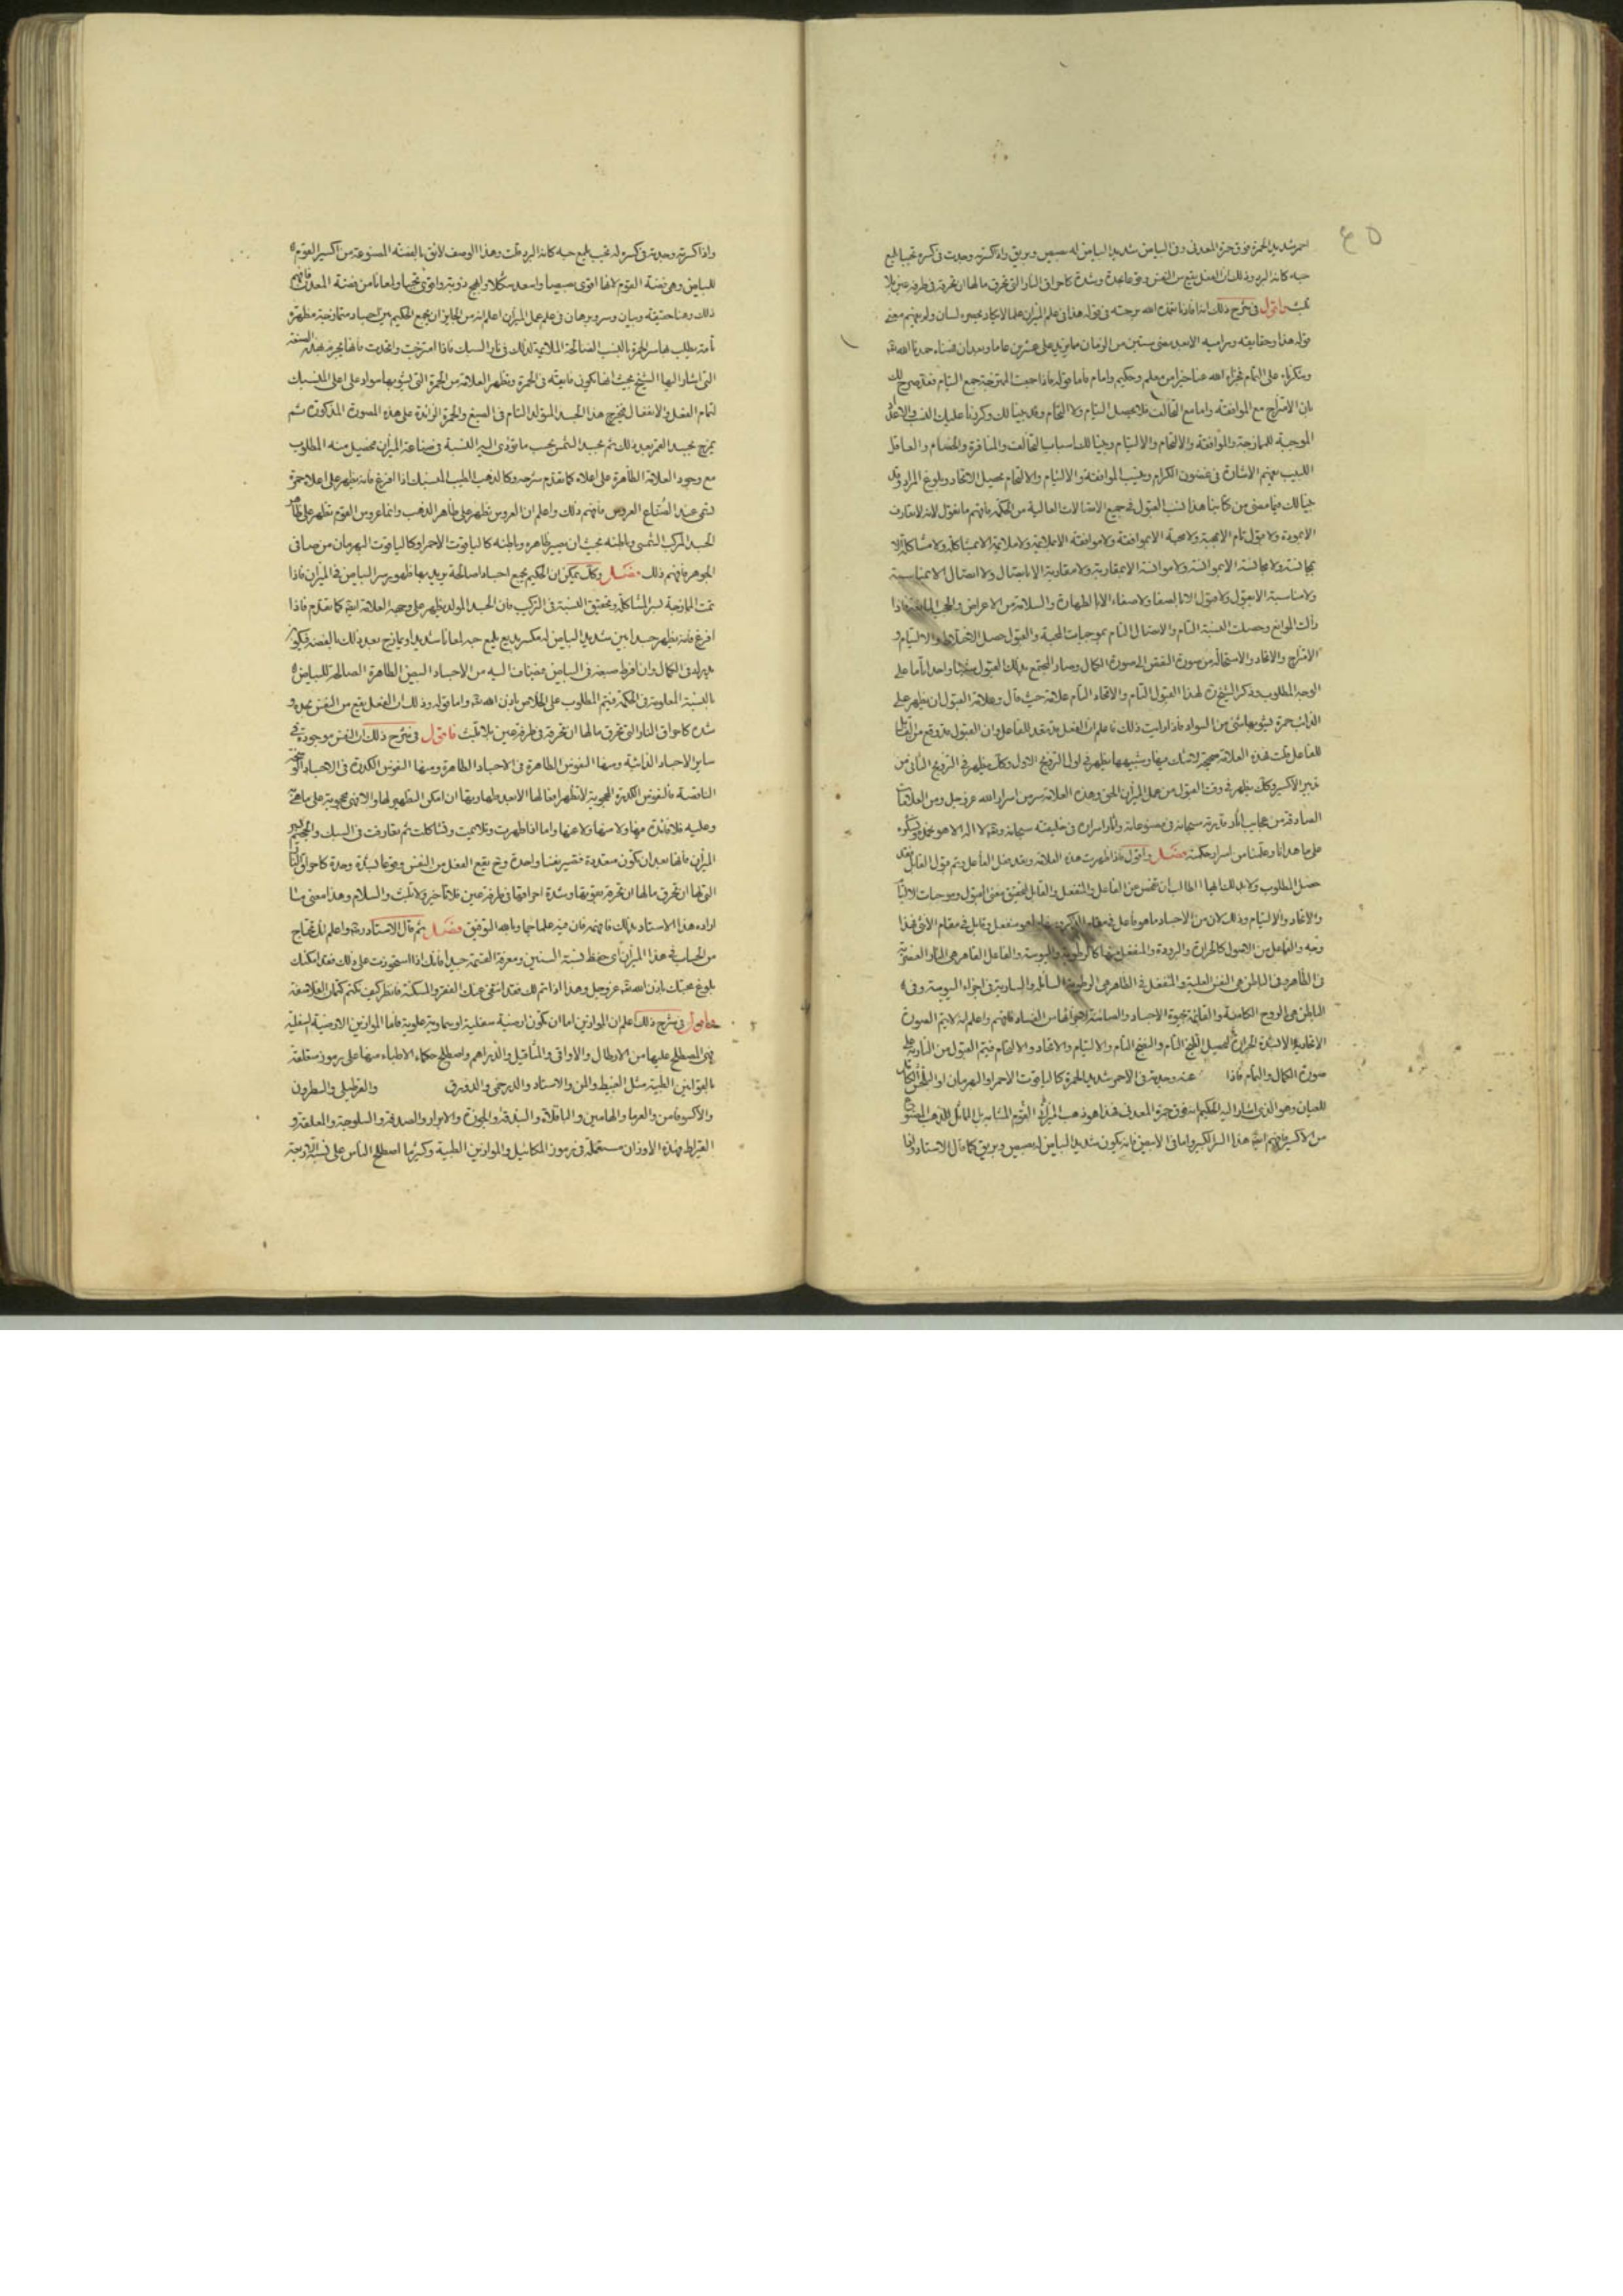 ٤٥
احمر شديد الحمرة فوق حمرة المعدنى وفى البياض شديد البياض له بصيص وبريق واذا كسرته وجدت فى كسره تحببا يلمع
حبه كانه البرد وذلك ان الفعل يقع من النفس وقوعا بحدة وشدة كاحراق النار التى تحرق مالها ان تحرقه فى طرفة عين بلا
لبث واقول فى شرح ذلك ان استاذنا تغمده الله برحمته فى قوله هذا فى علم الميزان علما لا يكاد يعبره لسان ولم نفهم معنى
قوله هذا وحقايقه ومراميه الا بعد مضى سنين من الزمان ما يزيد على عشرين عاما وبعد ان فهمناه حمدنا الله تعالى
وشكرناه على التمام فجزاه الله عنا خيرا من معلم وحكيم وامام فاما قوله فاذا جمعت الممتزجة جمع التيام فقد صرح لك
بان الامتزاج مع الموافقة واما مع التخالف فلا يحصل التيام ولا التحام وقد بينا لك وكررنا عليك النسب والاعداد
الموجبة للممازجة والموافقة والالتحام والالتيام وبينا لك اسباب التخالف والمنافرة والخصام والعاقل
اللبيب يفهم الاشارة فى غضون الكلام وبنسب الموافقة والالتيام والالتحام يحصل الاتحاد وبلوغ المراد وقد
بينا لك فيما مضى من كتابنا هذا نسب القبول فى جميع الاتصالات العالية من الحكمة فافهم ما نقول لانه لا تعارف
الا بمودة ولا قبول تام الا بمحبة ولا محبة الا بموافقة ولا موافقة الا بملايمة ولا ملايمة الا بمشاكلة ولا مشاكلة الا
بمجانسة ولا مجانسة الا بموانسة ولا موانسة الا بمقاربة ولا مقاربة الا باتصال ولا اتصال الا بمناسبة
ولا مناسبة الا بقبول ولا قبول الا بالصفا ولا صفاء الا بالطهارة والسلامة من الاعراض والحجب المانعة فاذا
زالت الموانع وحصلت النسبة التام والاتصال التام بموجبات المحبة والقبول حصل الاختلاط والالتيام و
الامتزاج والاتحاد والاستحالة من صورة النقص الى صورة الكمال وصار المجتمع بذلك القبول شيئا واحدا تاما على
الوجه المطلوب وذكر الشيخ لهذا القبول التام والاتحاد التام علامة حيث قال وعلامة القبول ان يظهر على
الذائب حمرة يشوبها شئ من السواد فاذا رايت ذلك فاعلم ان الفعل قد نفد للفاعل وان القبول قد وقع من القابل
للفاعل قلت هذه العلامة صحيحة لا شك فيها وشبيهها يظهر فى اول التزويج الاول وكذلك يظهر فى التزويج الثانى من
تدبير الاكسير وكذلك يظهر فى وقت القبول من عمل الميزان الحق وهذه العلامة سر من اسرار الله عز وجل ومن العلامات
الصادقة من عجايب اثار تاثيرته سبحانه فى مصنوعاته واثار اسراره فى خليقته سبحانه وتعالى لا اله الا هو نحمده ونشكره
على ما هدانا وعلمنا من اسرار حكمته فصل واقول فاذا ظهرت هذه العلامة ونفد فعل الفاعل وتم قبول القابل فقد
حصل المطلوب ولا بد لك ايها الطالب ان تفحص عن الفاعل والمنفعل والقابل لتحقيق معنى القبول وموجبات الالتيام
والاتحاد والالتيام وذلك لان من الاجساد ما هو فاعل فى مقام الذكر ومنها ما هو منفعل وقابل فى مقام الانثى فهذا
وجه والفاعل من الاصول كالحرارة والبرودة والمنفعل منها كالرطوبة واليبوسة والفاعل الظاهر هى النار العنصرية
فى الظاهر وفى الباطن هى النفس الغلبية والمنفعل فى الظاهر هى الرطوبة السائلة والسارية فى اجزاء اليبوسة وفى
الباطن هى الروح الكامنة والقائمة بحيوة الاجساد والصائنة لاجزائها من الفساد فافهم واعلم انه لا يتم الصورة
الاتحادية الا بشدة الحرارة لتحصيل المزج التام والنضج التام والالتيام والاتحاد والالتحام فيتم القبول من النارية على
صورة الكمال والتمام فاذا عنه وجدته فى الاحمر شديد الحمرة كالياقوت الاحمر او البهرمان او البلخش الكائن
للعيان وهو الذى اشار اليه الحكيم انه فوق حمرة المعدنى فهذا هو ذهب الميزان القوم المشابه بل المماثل للذهب المصنوع
من الاكسير فافهم ايها هذا السر الكبير واما فى الابيض فانه يكون شديد البياض له بصيص وبريق كما قال الاستاد وانما
واذا كسرته وجدته فى كسره له تحبب يلمع حبه كانه البرد قلت وهذا الوصف لايق بالفضة المصنوعة من اكسير القوم
للبياض وهى فضة القوم لانها اقوى بصيصا واسعد شكلا وابهج رؤية واقوى تحببا ولمعانا من فضة المعدن فافهم
ذلك وهنا حقيقة وبيان وسر وبرهان فى علم عمل الميزان اعلم انه من الجايز ان يجمع الحكيم بين اجساد متمازجة مطهرة
تامة يطلب بها سر الحمرة بالنسب الصالحة الملايمة لذلك فى نار السبك فاذا امتزجت واتحدت فانها تخرج بهذه الصفة
التى اشار اليها الشيخ بحيث انها تكون فايقة فى الحمرة وتظهر العلامة من الحمرة التى يشوبها سواد على اعلى المنسبك
لتمام الفعل والانفعال فيخرج هذا الجسد المتولد التام فى الصبغ والحمرة الزائدة على هذه الصورة المذكورة ثم
يمزج بجسد القمر بعد ذلك ثم بجسد الشمس بحسب ما تؤدى اليه النسبة فى صناعة الميزان فيحصل منه المطلوب
مع وجود العلامة الظاهرة على اعلاه كما تقدم شرحه وكالذهب الطيب المنسبك اذا افرغ فانه يظهر على اعلاه حمرة
تسمى عند الصناع العروس فافهم ذلك واعلم ان العروس يظهر على ظاهر الذهب وانما عروس القوم تظهر على ظاهر
الجسد المركب الشمسى وباطنه بحيث ان يصير ظاهره وباطنه كالياقوت الاحمر او كالياقوت البهرمان من صافى
الجوهر فافهم ذلك فصل وكذلك يمكن ان الحكيم يجمع اجسادا صالحة يريد بها ظهور سر البياض فى الميزان فاذا
تمت الممازجة بسر المشاكلة وتحقيق النسبة فى التركيب فان الجسد المولد يظهر على وجهه العلامة ايضا كما تقدم فاذا
افرغ فانه يظهر جسدا ابيض شديد البياض له مكسر بديع يلمع حبه لمعانا شديدا ويمازج بعد ذلك بالفضة فيكون
يزيد فى الكمال وان افرط صبغه فى البياض فيضاف اليه من الاجساد البيض الطاهرة الصالحة للبياض
بالنسبة المعلومة فى الحكمة فيتم المطلوب على الخلاص باذن الله تعالى واما قوله وذلك ان الفعل يقع من النفس بحدة و
شدة كاحراق النار التى تحرق مالها ان تحرقه فى طرفة عين بلا لبث فاقول فى شرح ذلك ان النفس موجودة فى
ساير الاجساد الذائبة ومنها النفوس الطاهرة فى الاجساد الطاهرة ومنها النفوس الكدرة فى الاجساد الوسخة
الناقصة فالنفوس الكدرة المحجوبة لا تظهر افعالها الا بعد طهارتها ان امكن التطهير لها والا فهى محجوبة على ما هى
وعليه فلا فائدة فيها ولا منها ولا عنها واما اذا طهرت وتلايمت وتشاكلت ثم تعارفت فى السبك والجحيم
الميزان فانها بعد ان تكون متعددة فتصير نفسا واحدة وح يقع الفعل من النفس وقوعا بشدة وحدة كاحراق النار
التى لها ان تحرق مالها ان تحرقه بقوتها وشدة احراقها فى طرفة عين فلا تاخير ولا تلبث والسلام وهذا معنى ما
اراده هذا الاستاد بذلك فافهمه فان فيه علما جما وبالله التوفيق فصل ثم قال الاستاد واعلم انك تحتاج
من الحساب فى هذا الميزان الى حفظ نسبة السنين ومعرفة القسمة جيدا فانك اذا استحوزت على ذلك فقد امكنك
بلوغ محبتك باذن الله تعالى عز وجل وهذا اذا تم لك فقد انتفى عنك الفقر والمسكنة فانظر كيف تكتم كتمان الفلاسفة
فاقول فى شرح ذلك اعلم ان الموازين اما ان تكون ارضية سفلية او سماوية علوية فاما الموازين الارضية السفلية
فهى المصطلح عليها من الارطال والاواقى والمثاقيل والدراهم واصطلح حكماء الاطباء منها على رموز متعلقة
بالقوانين الطبية مثل القسط والمن والاستاد والدرخمى والدورق والقرطيل والسطرون
والاكسوثافن والعرما والهامين والباقلاة والبندقة والجوزة والابراد والصدفة والسلوجة والملعقة و
القيراط فهذه الاوزان مستعملة فى رموز المكائيل والموازين الطبية وكثيرا اصطلح الناس على نسبة الاوجبة